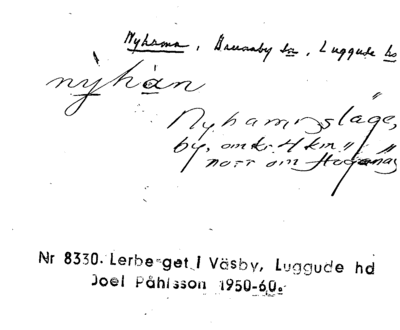 Nyhamn, Brunnby sn, Luggude hd
nyhàn
Nyhamnsläge,
by, omkr. 4 km
norr om Höganäs
Nr 8330. Lerberget i Väsby, Luggude hd
Joel Påhlsson 1950-60.